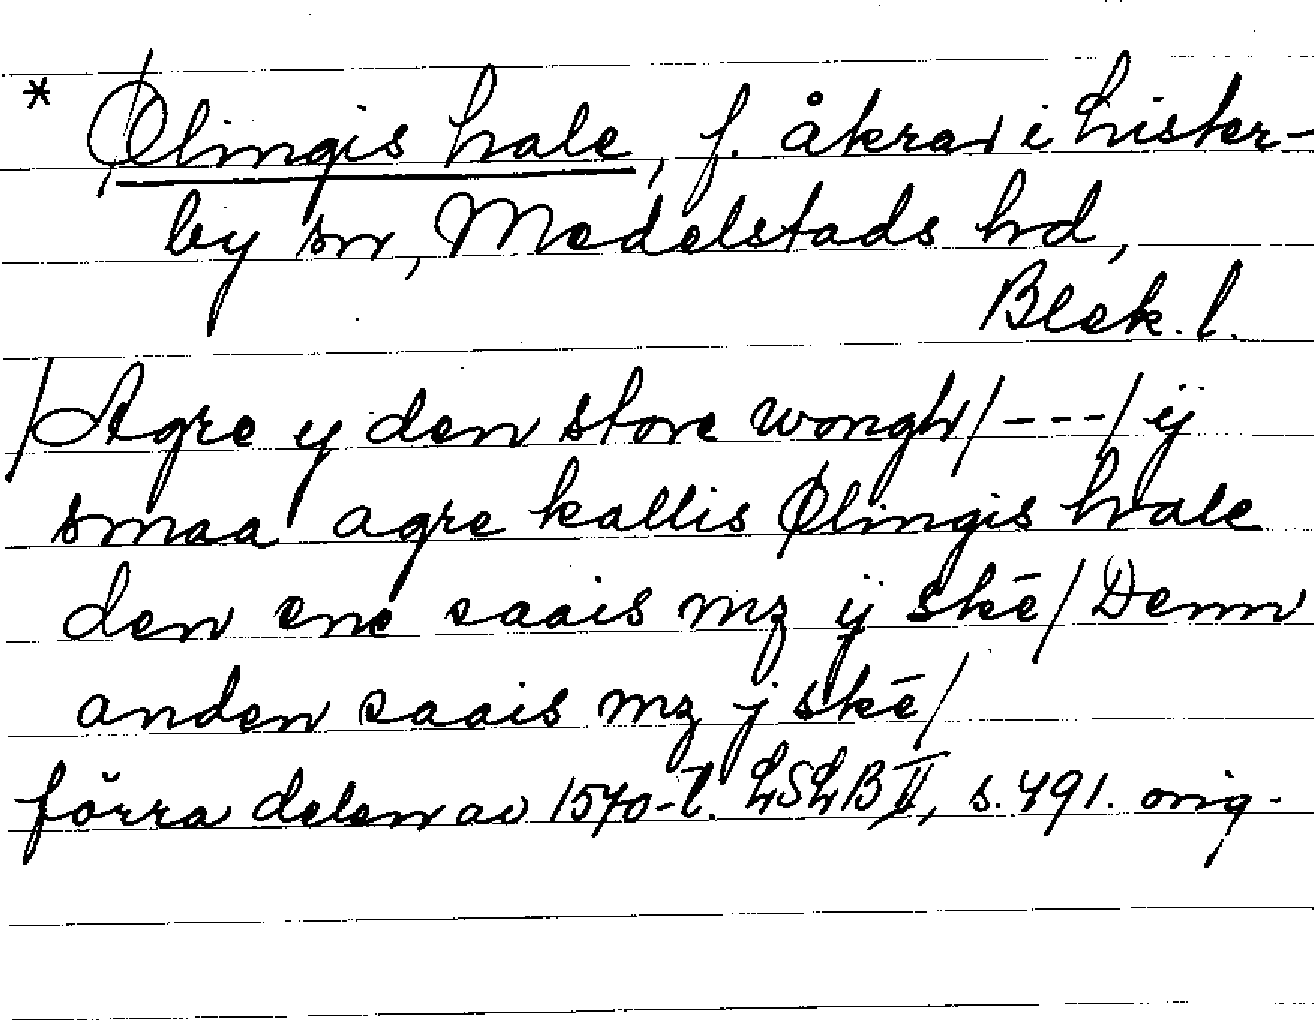 * Ølingis hale, f. åkrar i Lister-
by sn, Medelstads hd,
Blek. l.
/Agre y den store wongh/---/ ij
smaa agre kallis Ølingis hale
den ene saais mz ij skē/Denn
anden saais mz j skē/
förra delen av 1570-t. LSLB II, s. 491. orig.